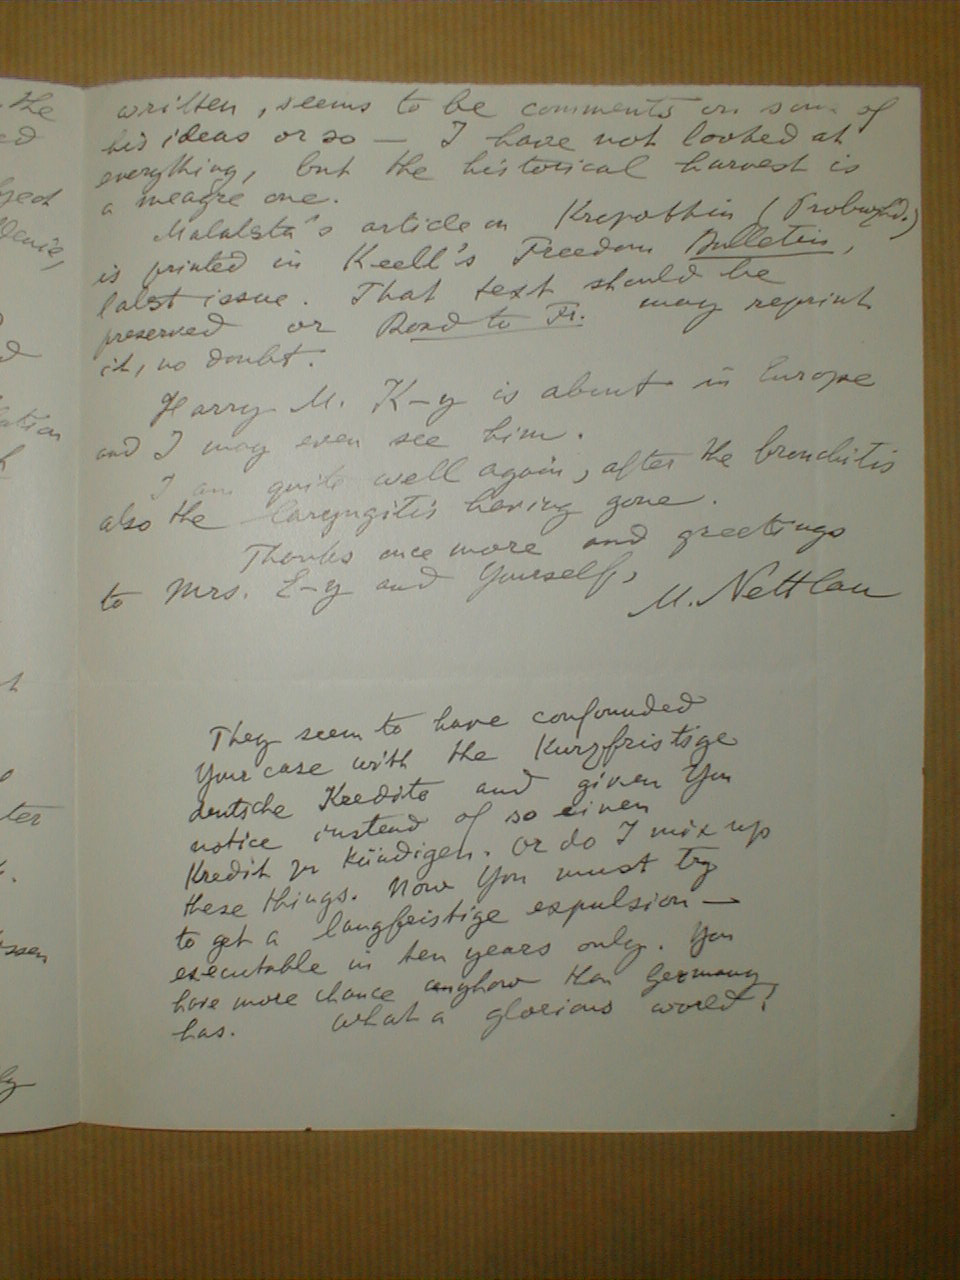 written, seems to be comments on some of
his ideas or so — I have not looked at
everything, but the historical harvest is
a meagre one.
Malatesta's article on Kropotkin (Probuzhd.)
is printed in Keell's Freedom Bulletin,
latest issue. That text should be
preserved or Road to Fr. may reprint
it, no doubt.
Harry M. K-y is about in Europe
and I may even see him.
I am quite well again, after the bronchitis
also the laryngitis having gone.
Thanks once more and greetings
to Mrs. E-y and Yourself,
M. Nettlau
They seem to have confounded
Your case with the Kurzfristige
deutsche Kredite and given You
notice instead of so einen
Kredit zu kündigen. Or do I mix up
these things. Now You must try
to get a langfristige expulsion —
executable in ten years only. You
have more chance anyhow than Germany
has. What a glorious world!
the
ed
ject
ation
ter
ssen